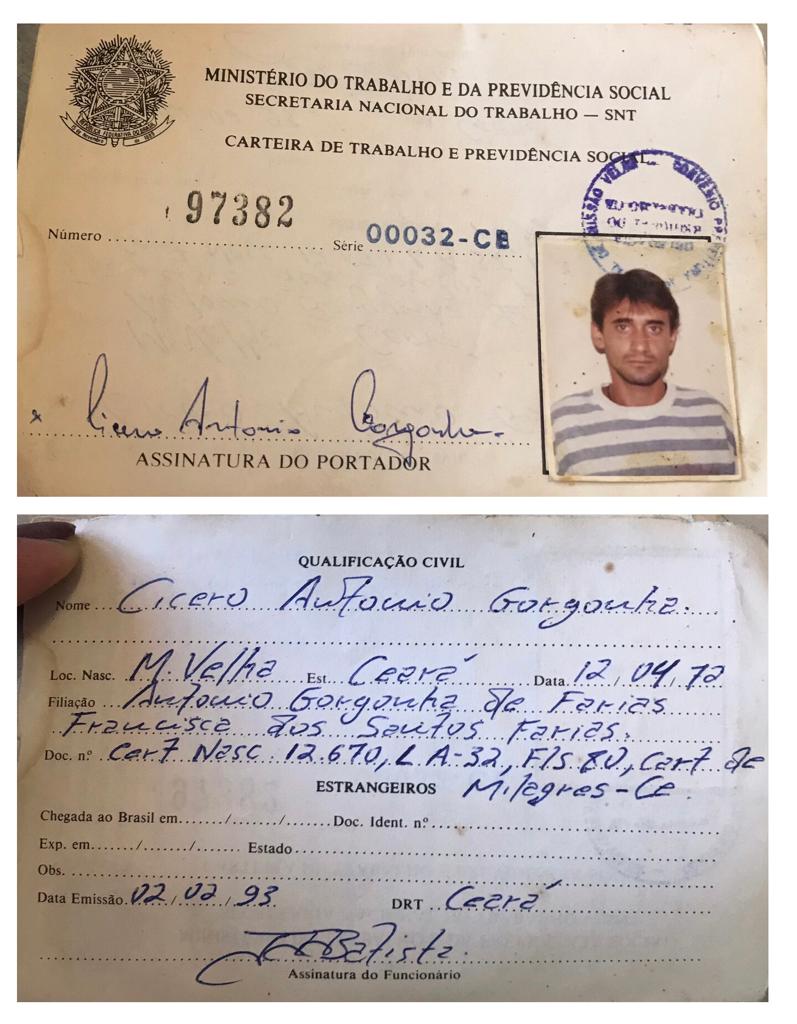 MINISTÉRIO DO TRABALHO E DA PREVIDÊNCIA SOCIAL
SECRETARIA NACIONAL DO TRABALHO — SNT
CARTEIRA DE TRABALHO E PREVIDÊNCIA SOCIAL
Número 97382 Série 00032-CE
Cicero Antonio Gorgonha
ASSINATURA DO PORTADOR
QUALIFICAÇÃO CIVIL
Nome Cicero Antonio Gorgonha.
Loc. Nasc. M. Velha Est. Ceará Data 12/04/72
Filiação Antonio Gorgonha de Farias
Francisca dos Santos Farias.
Doc. nº Cert Nasc 12.670, L A-32, Fls 80, Cart de
ESTRANGEIROS Milagres-Ce
Chegada ao Brasil em ....../....../...... Doc. Ident. nº
Exp. em ....../....../...... Estado
Obs.
Data Emissão 02/02/93 DRT Ceará
Batista
Assinatura do Funcionário